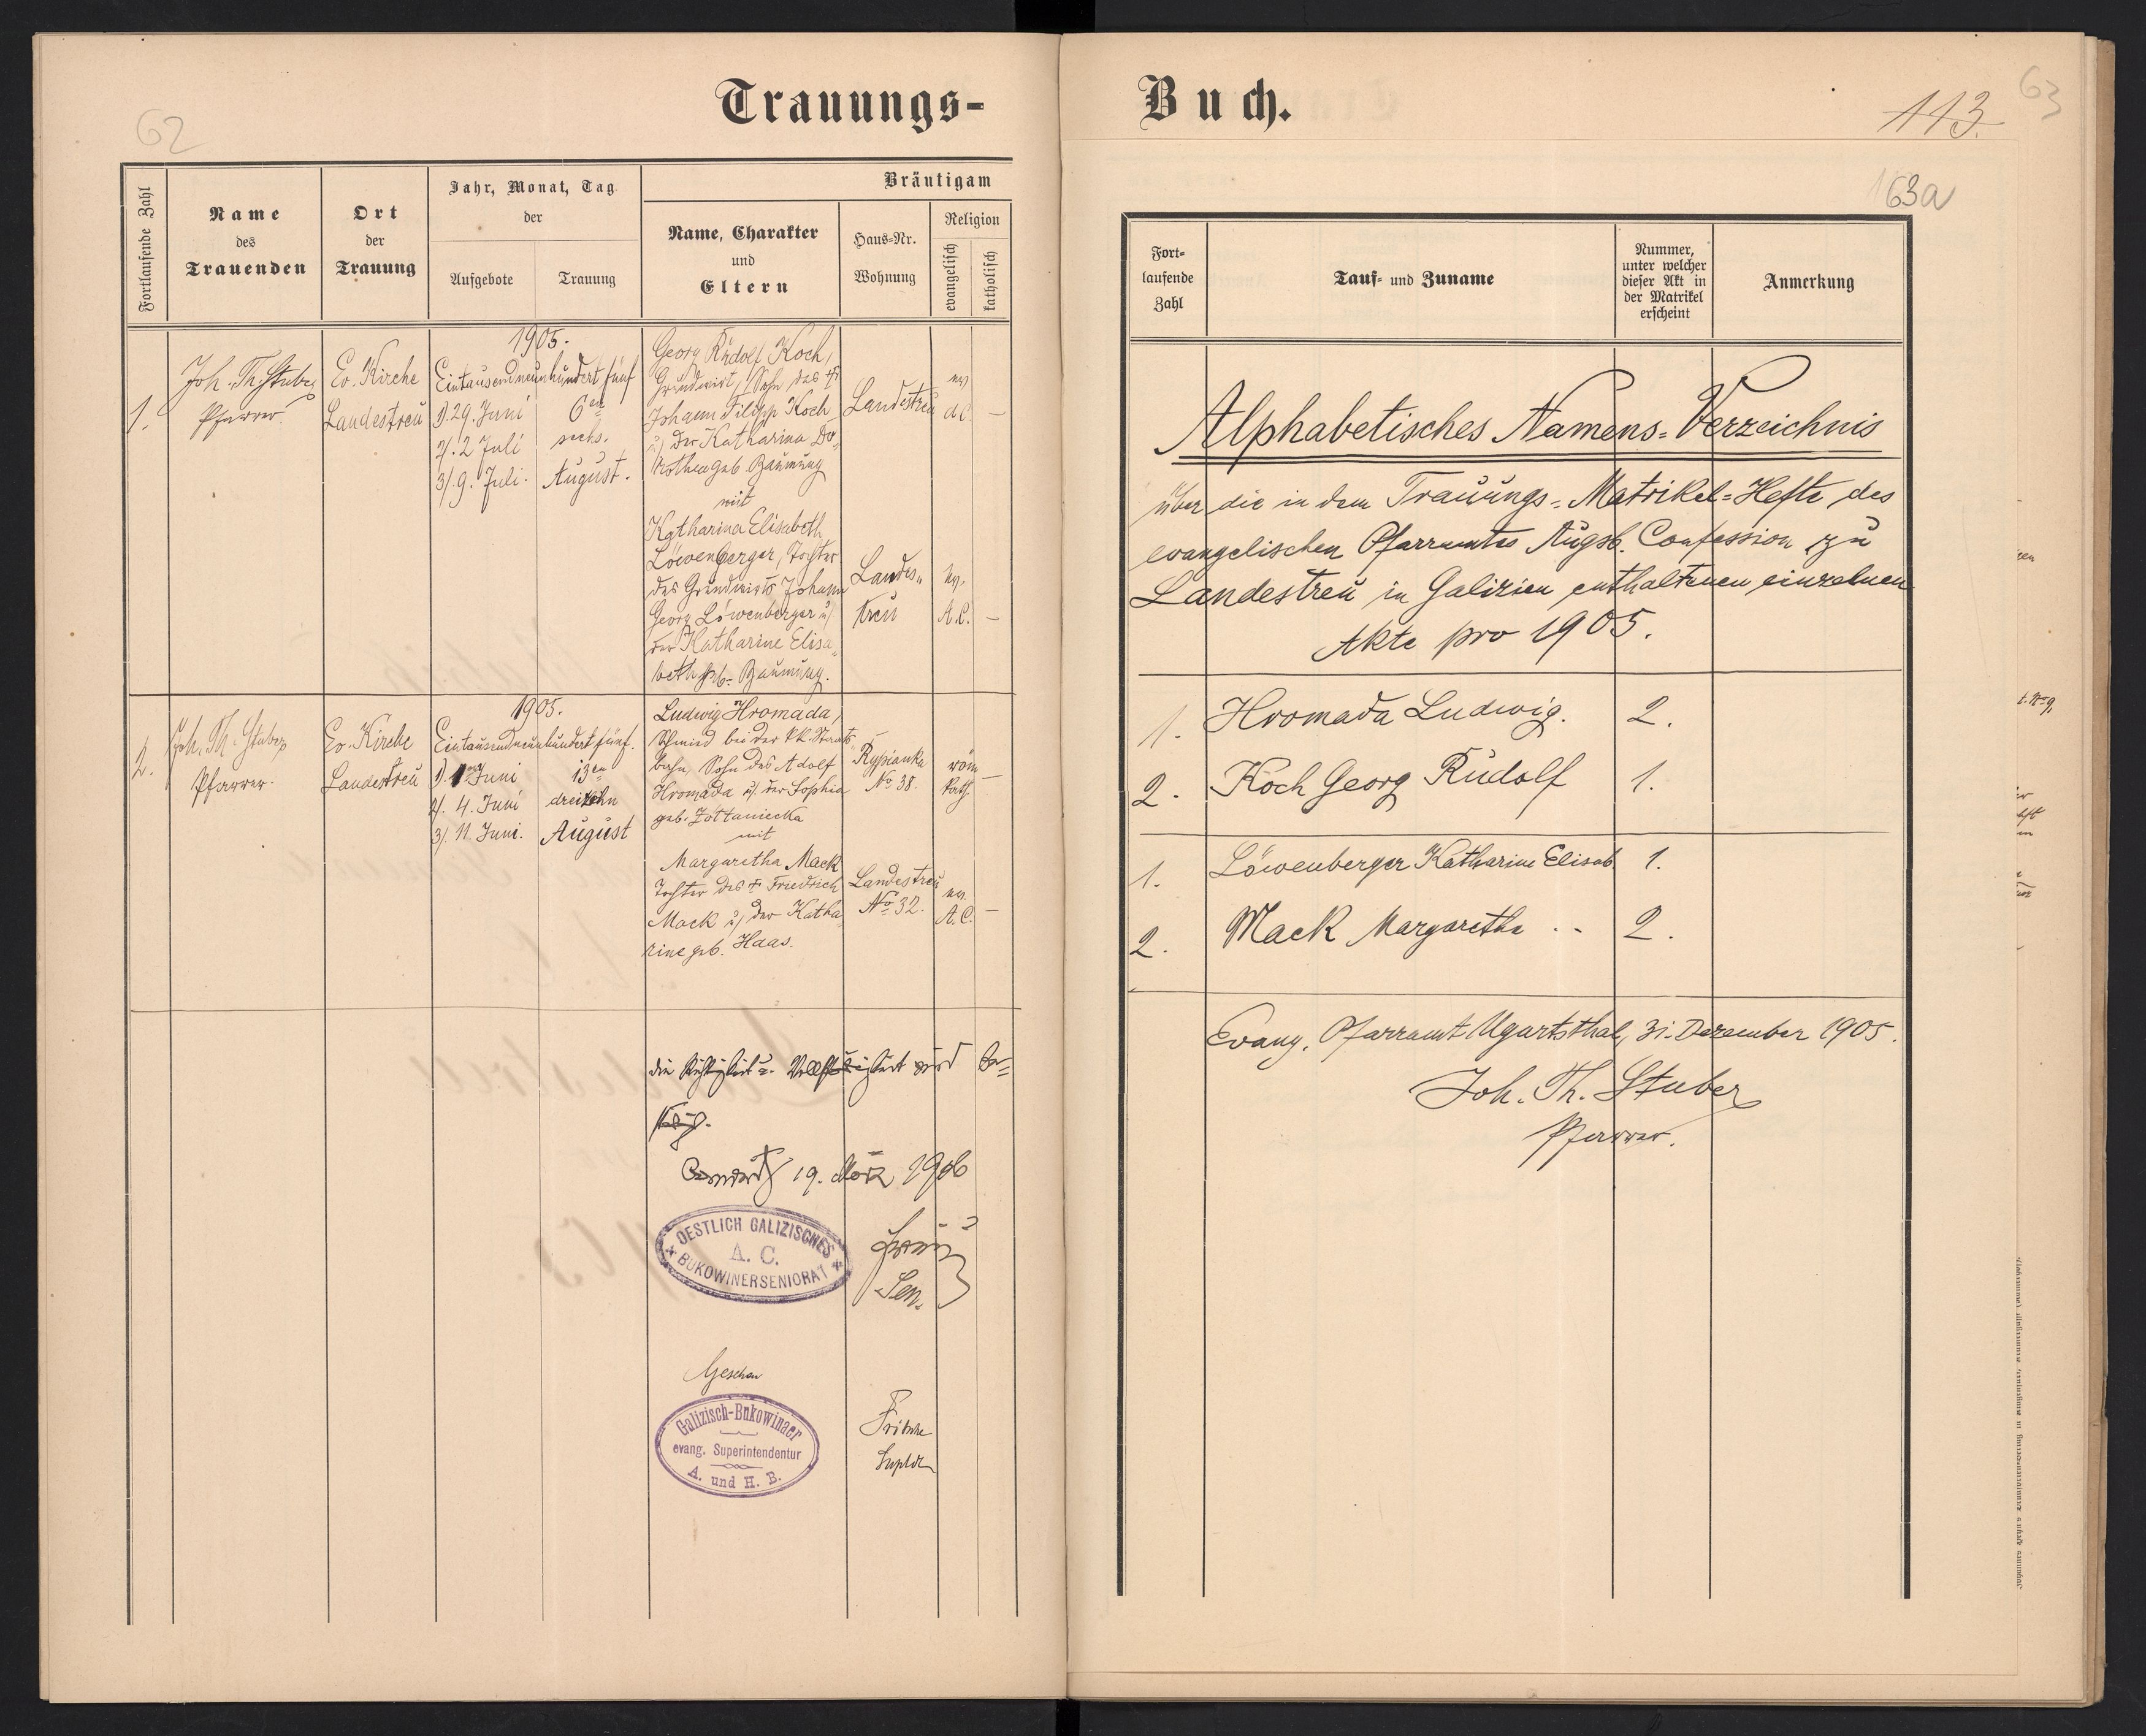 62
Trauungs-
Fortlaufende Zahl
Name
des
Trauenden
Ort
der
Trauung
Jahr, Monat, Tag
der
Aufgebote
Trauung
Bräutigam
Name, Charakter
und
Eltern
Haus-Nr.
Wohnung
Religion
evangelisch
katholisch
1.
Joh. Th. Stuber
Pfarrer.
Ev. Kirche
Landestreu
1905.
Eintausendneunhundert fünf
1). 29. Juni
2/. 2 Juli
3/. 9. Juli.
6en
sechs.
August.
Georg Rudolf Koch,
Grundwirt, Sohn des †
Johann Filipp Koch
u/ der Katharina Do-
rothea geb. Baumung
mit
Katharina Elisabeth
Löwenberger, Tochter
des Grundwirts Johann
Georg Löwenberger u/
der Katharine Elisa-
beth geb. Baumung.
Landestreu
ev
A.C.
—
Landes-
treu
ev.
A.C.
—
2.
Joh. Th. Stuber
Pfarrer.
Ev. Kirche
Landestreu
1905.
Eintausendneunhundert fünf.
1). 1 Juni
2/. 4. Juni
3/. 11. Juni.
13en
dreizehn
August
Ludwig Hromada,
Schmied bei der k.k. Staats-
bahn, Sohn des Adolf
Hromada u/ der Sophia
geb. Żółtaniecka
mit
Margaretha Mack
Tochter des † Friedrich
Mack u/ der Katha-
rine geb. Haas.
Rypianka
No 38.
röm
kath.
—
Landestreu
No 32.
ev.
A.C.
—
die Richtigkeit u. Vollständigkeit wird be-
stätigt.
19. März 1906
OESTLICH GALIZISCHES
A. C.
BUKOWINERSENIORAT
Sen.
Gesehen
Galizisch-Bukowinaer
evang. Superintendentur
A. und H. B.
Fritsche
Suptdt
Buch.
113.
63
63a
Fort-
laufende
Zahl
Tauf- und Zuname
Nummer,
unter welcher
dieser Akt in
der Matrikel
erscheint
Anmerkung
Alphabetisches Namens-Verzeichnis
über die in dem Trauungs-Matrikel-Hefte des
evangelischen Pfarramtes Augsb. Confession zu
Landestreu in Galizien enthaltenen einzelnen
Akte pro 1905.
1. Hromada Ludwig. 2.
2. Koch Georg Rudolf 1.
1. Löwenberger Katharine Elisab. 1.
2. Mack Margaretha .. 2.
Evang. Pfarramt Ugartsthal, 31. Dezember 1905.
Joh. Th. Stuber
Pfarrer.